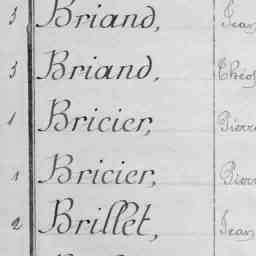 3 Briand, Jean
3 Briand, Théop
1 Bricier, Pierre
1 Bricier, Pierr
2 Brillet, Jean